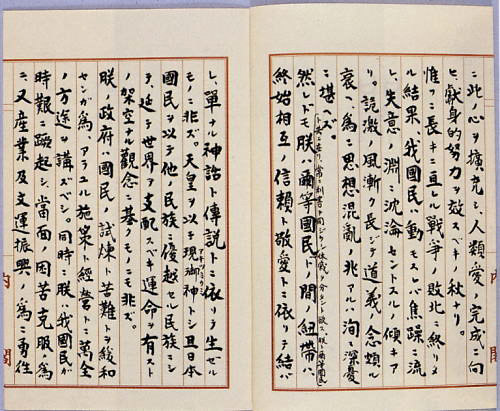 ニ此ノ心ヲ擴充シ、人類愛ノ完成ニ向
ヒ、獻身的努力ヲ效スベキノ秋ナリ。
惟フニ長キニ亘レル戰爭ノ敗北ニ終リタ
ル結果、我國民ハ動モスレバ焦躁ニ流
レ、失意ノ淵ニ沈淪セントスルノ傾キア
リ。詭激ノ風漸ク長ジテ道義ノ念頗ル
衰ヘ、爲ニ思想混亂ノ兆アルハ洵ニ深憂
ニ堪ヘズ。
ト共ニ在リ、常ニ利害ヲ同ジウシ休戚ヲ分タント欲ス。朕ト爾等國民
然レドモ朕ハ爾等國民トノ間ノ紐帶ハ、
終始相互ノ信賴ト敬愛トニ依リテ結バ
内
閣
レ、單ナル神話ト傳説トニ依リテ生ゼル
アキツミカミ
モノニ非ズ。天皇ヲ以テ現御神トシ、且日本
國民ヲ以テ他ノ民族ニ優越セル民族ニシ
テ、延テ世界ヲ支配スベキ運命ヲ有スト
ノ架空ナル觀念ニ基クモノニモ非ズ。
朕ノ政府ハ國民ノ試煉ト苦難トヲ緩和
センガ爲、アラユル施策ト經營トニ萬全
ノ方途ヲ講ズベシ。同時ニ朕ハ我國民ガ
時艱ニ蹶起シ、當面ノ困苦克服ノ爲
ニ、又産業及文運振興ノ爲ニ勇往
内
閣